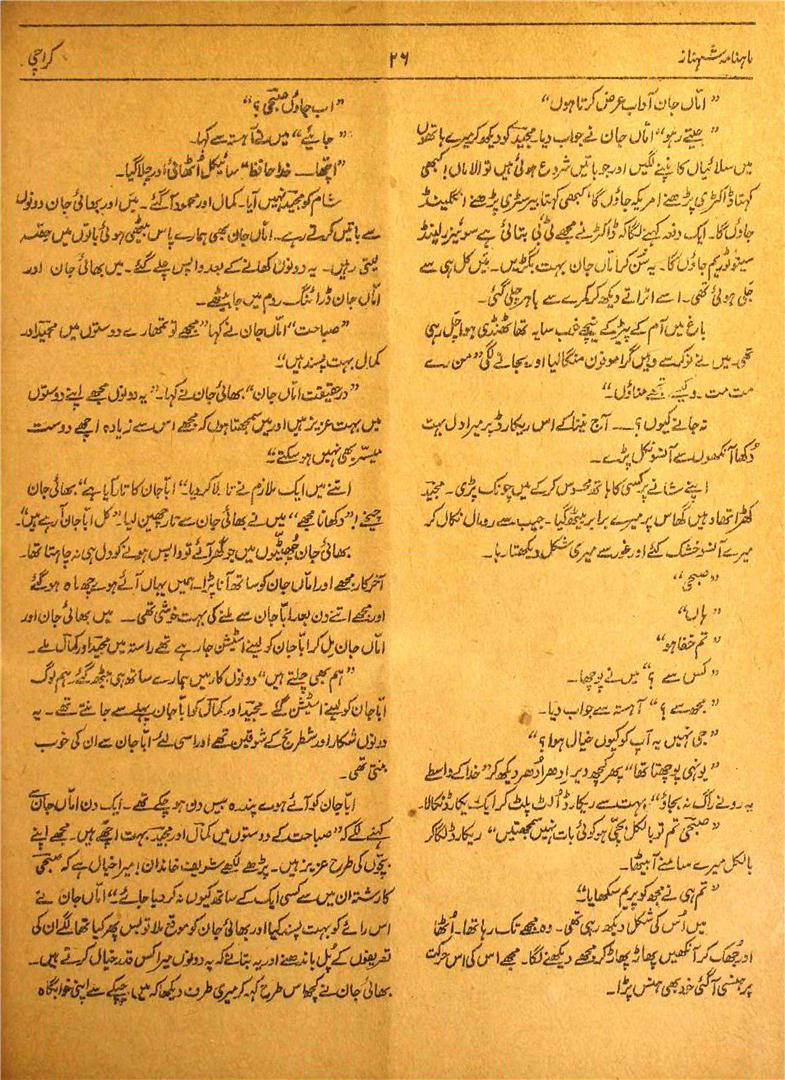 ماہنامہ شہناز
۲۶
کراچی
"اماں جان آداب عرض کرتا ہوں"
"جیتے رہو" اماں جان نے جواب دیا۔ مجید کو دیکھ کر میرے ہاتھوں
میں سلائیاں کانپنے لگیں اور جو باتیں شروع ہوئی ہیں تو الاماں! کبھی
کہتا ڈاکٹری پڑھنے امریکہ جاؤں گا، کبھی کہتا بیرسٹری پڑھنے انگلینڈ
جاؤں گا۔ ایک دفعہ کہنے لگا کہ ڈاکٹر نے مجھے ٹی بی بتائی ہے سوئیزرلینڈ
سینوٹوریم جاؤں گا۔ یہ سُن کر اماں جان بہت بگڑیں۔ میں کل ہی سے
جَلی ہوئی تھی۔ اسے اتراتے دیکھ کر کمرے سے باہر چلی گئی۔
باغ میں آم کے پیڑ کے نیچے خوب سایہ تھا ٹھنڈی ہوا چل رہی
تھی۔ میں نے نوکر سے وہیں گراموفون منگالیا اور بجانے لگی "من رے
مت مت رو کیسے تجھے مناؤں۔"
نہ جانے کیوں؟ — آج بینا کے اس ریکارڈ پر میرا دل بہت
دُکھا آنکھوں سے آنسو نکل پڑے۔
اپنے شانے پر کسی کا ہاتھ محسوس کر کے میں چونک پڑی۔ مجید
کھڑا تھا وہیں گھاس پر میرے برابر بیٹھ گیا۔ جیب سے رومال نکال کر
میرے آنسو خشک کئے اور غور سے میری شکل دیکھتا رہا۔
"صبحی"
"ہاں"
"تم خفا ہو"
"کس سے؟" میں نے پوچھا۔
"مجھ سے؟" آہستہ سے جواب دیا۔
"جی نہیں یہ آپ کو کیوں خیال ہوا؟"
"یونہی پوچھتا تھا" پھر کچھ دیر ادھر اُدھر دیکھ کر "خدا کے واسطے
یہ رونے راگ نہ بجاؤ" بہت سے ریکارڈ اُلٹ پلٹ کر ایک ریکارڈ نکالا۔
"صبحی تم تو بالکل بچی ہو کوئی بات نہیں سمجھتیں" ریکارڈ لگا کر
بالکل میرے سامنے آ بیٹھا۔
"تم ہی نے مجھ کو پریم سکھایا"
میں اُس کی شکل دیکھ رہی تھی۔ وہ مجھے تک رہا تھا۔ اُٹھا
اور جُھک کر آنکھیں پھاڑ پھاڑ کر مجھے دیکھنے لگا۔ مجھے اس کی اس حرکت
پر ہنسی آگئی خود بھی ہنس پڑا۔
"اب جاؤں صبحی؟"
"جائیے" میں نے آہستہ سے کہا۔
"اچھا — خدا حافظ" سائیکل اُٹھائی اور چلا گیا۔
شام کو مجید نہیں آیا۔ کمال اور محمود آگئے۔ میں اور بھائی جان دونوں
سے باتیں کرتے رہے۔ اماں جان بھی ہمارے پاس بیٹھی ہوئی باتوں میں حصہ
لیتی رہیں۔ یہ دونوں کھانے کے بعد واپس چلے گئے۔ میں بھائی جان اور
اماں جان ڈرائنگ روم میں جا بیٹھے۔
"صباحت" اماں جان نے کہا "مجھے تو تمھارے دوستوں میں مجید اور
کمال بہت پسند ہیں"۔
"درحقیقت اماں جان" بھائی جان نے کہا۔ "یہ دونوں مجھے اپنے دوستوں
میں بہت عزیز ہیں اور میں سمجھتا ہوں کہ مجھے اس سے زیادہ اچھے دوست
میسّر بھی نہیں ہو سکتے"۔
اتنے میں ایک ملازم نے تار لا کر دیا۔ "ابا جان کا تار آیا ہے" بھائی جان
چیخے! "دکھانا مجھے" میں نے بھائی جان سے تار چھین لیا۔ "کل ابا جان آرہے ہیں"۔
بھائی جان چھٹیوں میں جو گھر آئے تو واپس ہونے کو دل ہی نہ چاہتا تھا۔
آخر کار مجھے اور اماں جان کو ساتھ آنا پڑا۔ ہمیں یہاں آئے ہوے چھ ماہ ہوگئے
اور مجھے اتنے دن بعد ابا جان سے ملنے کی بہت خوشی تھی — میں بھائی جان اور
اماں جان مل کر ابا جان کو لینے اسٹیشن جا رہے تھے راستہ میں مجید اور کمال ملے۔
"ہم بھی چلتے ہیں" دونوں کار میں ہمارے ساتھ ہی بیٹھ گئے۔ ہم لوگ
ابا جان کو لینے اسٹیشن گئے۔ مجید اور کمال کو ابا جان پہلے سے جانتے تھے۔ یہ
دونوں شکار اور شطرنج کے شوقین تھے اور اسی لئے ابا جان سے ان کی خوب
بنتی تھی۔
ابا جان کو آئے ہوے پندرہ بیس دن ہو چکے تھے۔ ایک دن اماں جان سے
کہنے لگے کہ "صباحت کے دوستوں میں کمال اور مجید بہت اچھے ہیں۔ مجھے اپنے
بچّوں کی طرح عزیز ہیں۔ پڑھے لکھے شریف خاندان! میرا خیال ہے کہ صبحی
کا رشتہ ان میں سے کسی ایک کے ساتھ کیوں نہ کر دیا جائے"۔ اماں جان نے
اس رائے کو بہت پسند کیا اور بھائی جان کو موقع ملا تو بس پھر کیا تھا لگے ان کی
تعریفوں کے پُل باندھنے اور یہ بتانے کہ یہ دونوں میرا کس قدر خیال کرتے ہیں۔
بھائی جان نے کچھ اس طرح کہہ کر میری طرف دیکھا کہ میں چپکے سے اپنی خوابگاہ